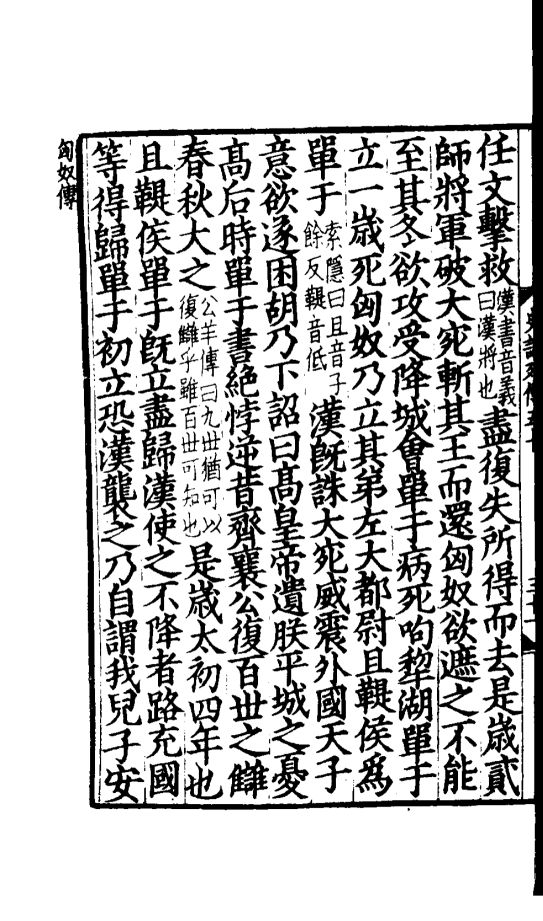 任文擊救漢書音義曰漢將也盡復失所得而去是歲貳
師將軍破大宛斬其王而還匈奴欲遮之不能
至其冬欲攻受降城會單于病死呴犂湖單于
立一歲死匈奴乃立其弟左大都尉且鞮侯爲
單于索隱曰且音子餘反鞮音低漢旣誅大宛威震外國天子
意欲遂困胡乃下詔曰高皇帝遺朕平城之憂
高后時單于書絶悖逆昔齊襄公復百世之讎
春秋大之公羊傳曰九世猶可以復讎乎雖百世可知也是歲太初四年也
且鞮侯單于旣立盡歸漢使之不降者路充國
等得歸單于初立恐漢襲之乃自謂我兒子安
匈奴傳